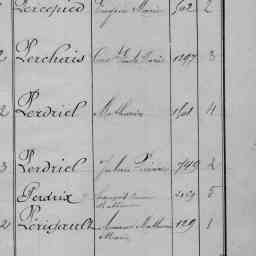 Percepied Eugène Marie 502 2
2 Perchais Const. Emile Marie 1297 3
2 Perdriel Mathurin 1501 4
3 Perdriel Julien Pierre 749 2
Perdrix 2059 5
2 Périgault Mathurin Marie 129 1